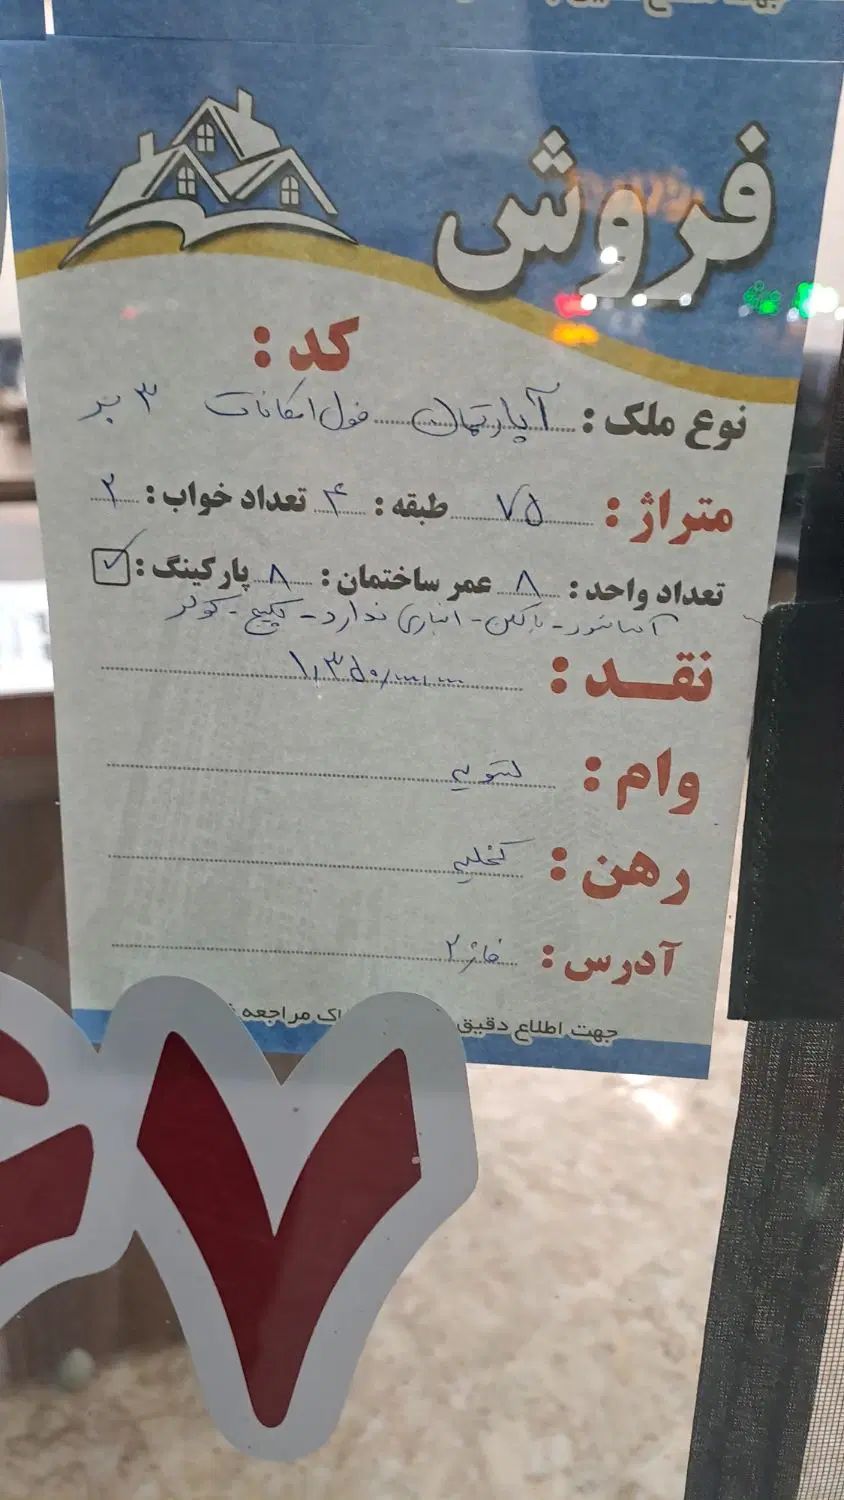 فروش
کد :
نوع ملک : آپارتمان فول امکانات ۳ بر
متراژ : ۷۵ طبقه : ۴ تعداد خواب : ۲
تعداد واحد : ۸ عمر ساختمان : ۸ پارکینگ : ✓
آسانسور - بالکن - انباری ندارد - پکیج - کولر
نقد : ۱,۳۵۰,۰۰۰,۰۰۰
وام : تسویه
رهن : تخلیه
آدرس : فاز ۲
جهت اطلاع دقیق مراجعه
۷